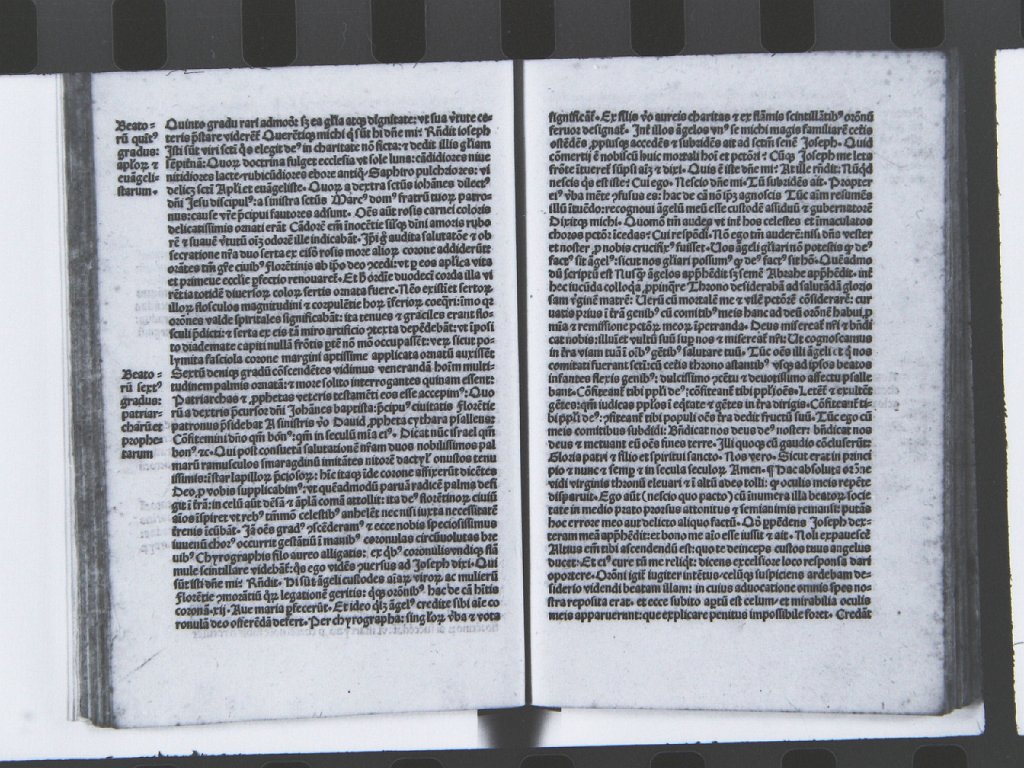 Beato-
rū quīt⁹
gradus:
aploꝝ ⁊
euāgeli-
starum.
Quinto gradu rari admoō: sꝫ ea gľia atqꝫ dignitate: vt sua ṽtute ce-
teris p̄stare viderēt̄ Querētiqꝫ michi q̄ sūt hi dñe mi: Rñdit ioseph
Isti sūt viri scti q̄s elegit de⁹ in charitate nō ficta: ⁊ dedit illis gľiam
sēpitnā: Quoꝝ doctrina fulget ecclesia vt sole luna: cādidiores niue
nitidiores lacte: rubicūdiores ebore antiq̄: Saphiro pulchriores: vi
delicꝫ scti Apľi et euāgeliste. Quoꝝ a dextra sctus iohānes dilect⁹
dñi Jesu discipul⁹: a sinistra sctus Marc⁹ dom⁹ fratrū tuoꝝ patro-
nus: cause ṽre p̄cipui fautores adsunt. Oēs aūt rosis carnei coloris
delicatissimis ornati erāt
secratione nr̄a duo serta ex eisō rosis more alioꝝ corone addiderūt
illoꝝ flosculos magnitudini ⁊ corpulētie hoꝝ īferioꝝ coeq̄ri: imo qꝝ
orōnes valde spiritales significabāt: ita tenues ⁊ graciles erant flo-
sculi p̄dicti: ⁊ serta ex eis tā miro artificio ꝯtexta depēdebāt: vt īposi
to diademate capiti nullā frōtis ptē nō mō occupassēt: veꝝ sicut po-
lymita fasciola corone margini aptissime applicata ornatū auxissēt
Beato-
rū sext⁹
gradus:
patriar-
charū et
prophe
tarum
Sextū deniqꝫ gradū cōscendētes vidimus venerandā hoīm multi-
tudinem palmis ornatā: ⁊ more solito interrogantes quinam essent:
Patriarchas ⁊ ꝓphetas veteris testamēti eos esse accepim⁹: Quo
rū a dextris p̄cursor dñi Johānes baptista: p̄cipu⁹ ciuitatis Florētie
patronus p̄sidebat A sinistris ṽo Dauid ꝓpheta cythara psallens:
Cōfitemini dño qm̄ bon⁹: qm̄ in seculū mīa ei⁹. Dicat nūc israel qm̄
bon⁹ ⁊c. Qui post consueta salutationē nr̄am duos nobilissimos pal
marū ramusculos smaragdinū imitātes nitorē dactyľ onustos tenu
issimis: īstar lapilloꝝ p̄ciosoꝝ: hīc itaqꝫ īde corone affixerūt dicētes
Deo ꝓ vobis supplicabim⁹: vt quēadmodū parua radicē palma defi
git ī frā: in celū aūt dēsā ⁊ āplā comā attollit: ita de⁹ florētinoꝝ ciuiū
aīos īspiret vt reb⁹ tm̄mō celestib⁹ anhelēt nec nisi iuxta necessitatē
trenis īcūbāt. Jā oēs grad⁹ ꝯscēderam⁹ ⁊ ecce nobis speciosissimus
iuuenū chor⁹ occurrit gestātiū ī manib⁹ coronulas circūuolutas bre
uib⁹ Chyrographis filo aureo alligatis: ex q̄b⁹ coronulis vndiqꝫ flā
mule scintillare videbāt̄: qs ego vidēs ꝯuersus ad Joseph dixi. Qui
sūt isti dñe mi: Rñdit. Hi sūt āgeli custodes aīaꝝ viroꝝ ac mulierū
coronā .xij. Aue maria pfecerūt. Et ideo qľꝫ āgel⁹ credite sibi aīe co
ronulā deo offerēdā defert. Per chyrographa: singľoꝝ ṽba ⁊ vota
significāt̄. Ex filis ṽo aureis charitas ⁊ ex flāmis scintillātib⁹ orōnū
feruor designat̄. Int̄ illos āgelos vn⁹ se michi magis familiarē cētis
ostēdēs ꝓptiusqꝫ accedēs ⁊ subridēs ait ad sctm̄ senē Joseph. Quid
cōmertij ē nobiscū huic mortali hoī et pctōri: Cūqꝫ Joseph me leta
frōte ītueret̄ suspīs aīꝫ ⁊ dixi. Quis ē iste dñe mi: At ille rñdit: Nūqd
nescis q̄s est iste: Cui ego. Nescio dñe mi. Tū subridēs ait. Propter
ei⁹ ṽba mēte ꝯfusus es: hac de cā nō ipꝫ agnoscis Tūc aīm resumēs
illū ītuēdo: recognoui āgelū meū esse custodē assiduū ⁊ gubernatorē
Dixitqꝫ michi. Quomō tm̄ audes vt int̄ hos celestes et imaculatos
choros pctōr īcedas: Cui respōdi. Nō ego tm̄ auderē: nisi dñs vester
et noster ꝓ nobis crucifix⁹ fuisset. Nos āgeli gľiari nō potestis qꝝ de⁹
fact⁹ sit āgel⁹: sicut nos gľiari possum⁹ qꝝ de⁹ fact⁹ sit hō. Quēadmo
dū scriptū est Nusqꝫ āgelos app̄hēdit sꝫ semē Abrahe app̄hēdit. int̄
hec iucūda colloqa ꝓpinq̄re Throno desiderabā ad salutādā glorio
sam ṽginē matrē: Uerū cū mortalē me ⁊ vilē pctōrē cōsiderarē: cur
uatis prius ī frā genib⁹ cū comitib⁹ meis hanc ad deū orōnē habui ꝓ
mīa ⁊ remissione pctōꝝ meoꝝ īpetranda. Deus misereat̄ nr̄i ⁊ bn̄di
cat nobis: illuīet vultū suū sup nos ⁊ misereat̄ nr̄i: Ut cognoscamus
in tr̄a viam tuā ī oīb⁹ gētib⁹ salutare tuū. Tūc oēs illi āgeli et q̄ nos
comitati fuerant scti: cū cetis throno astantib⁹ vsqꝫ ad ipsos beatos
infantes flexis genib⁹: dulcissimo ꝯcētu ⁊ deuotissimo affectu psalle
bant. Cōfiteant̄ tibi ppľi de⁹: cōfiteant̄ tibi ppľi oēs. Letēt̄ ⁊ exultēt
gētes: qm̄ iudicas ppľos ī eq̄tate ⁊ gētes in tr̄a dirigis. Cōfiteant̄ ti-
bi ppľi de⁹: ꝯfiteant̄ tibi populi oēs tr̄a dedit fructū suū. Tūc ego cū
meis comitibus subdidi: Bn̄dicat nos deus de⁹ noster: bn̄dicat nos
deus ⁊ metuant eū oēs fines terre. Illi quoqꝫ cū gaudio cōcluserūt:
Gloria patri ⁊ filio et spiritui sancto. Nos vero. Sicut erat in princi
pio ⁊ nunc ⁊ semp ⁊ in secula seculoꝝ Amen. ¶ Hac absoluta orōne
vidi virginis thronū eleuari ⁊ ī altū adeo tolli: qꝝ oculis meis repēte
disparuit. Ego aūt (nescio quo pacto) cū īnumera illa beatoꝝ socie
tate in medio prato prorsus attonitus ⁊ semianimis remansi: putās
hoc errore meo aut delicto aliquo factū. Qō ꝓpēdens Joseph dex-
teram meā app̄hēdit: et bono me aīo esse iussit ⁊ ait. Noli expauescē
Altius em̄ tibi ascendendū est: quo te deinceps custos tuus angelus
ducet. Et ei⁹ cure tū me reliqt: dicens excelsiore loco responsa dari
oportere. Orōni igit̄ iugiter intētus: celūqꝫ suspiciens ardebam de-
siderio videndi beatam illam: in cuius aduocatione omnis spes nos-
tra reposita erat. et ecce subito aptū est celum: et mirabilia oculis
meis apparuerunt: que explicare penitus impossibile foret. Credāt